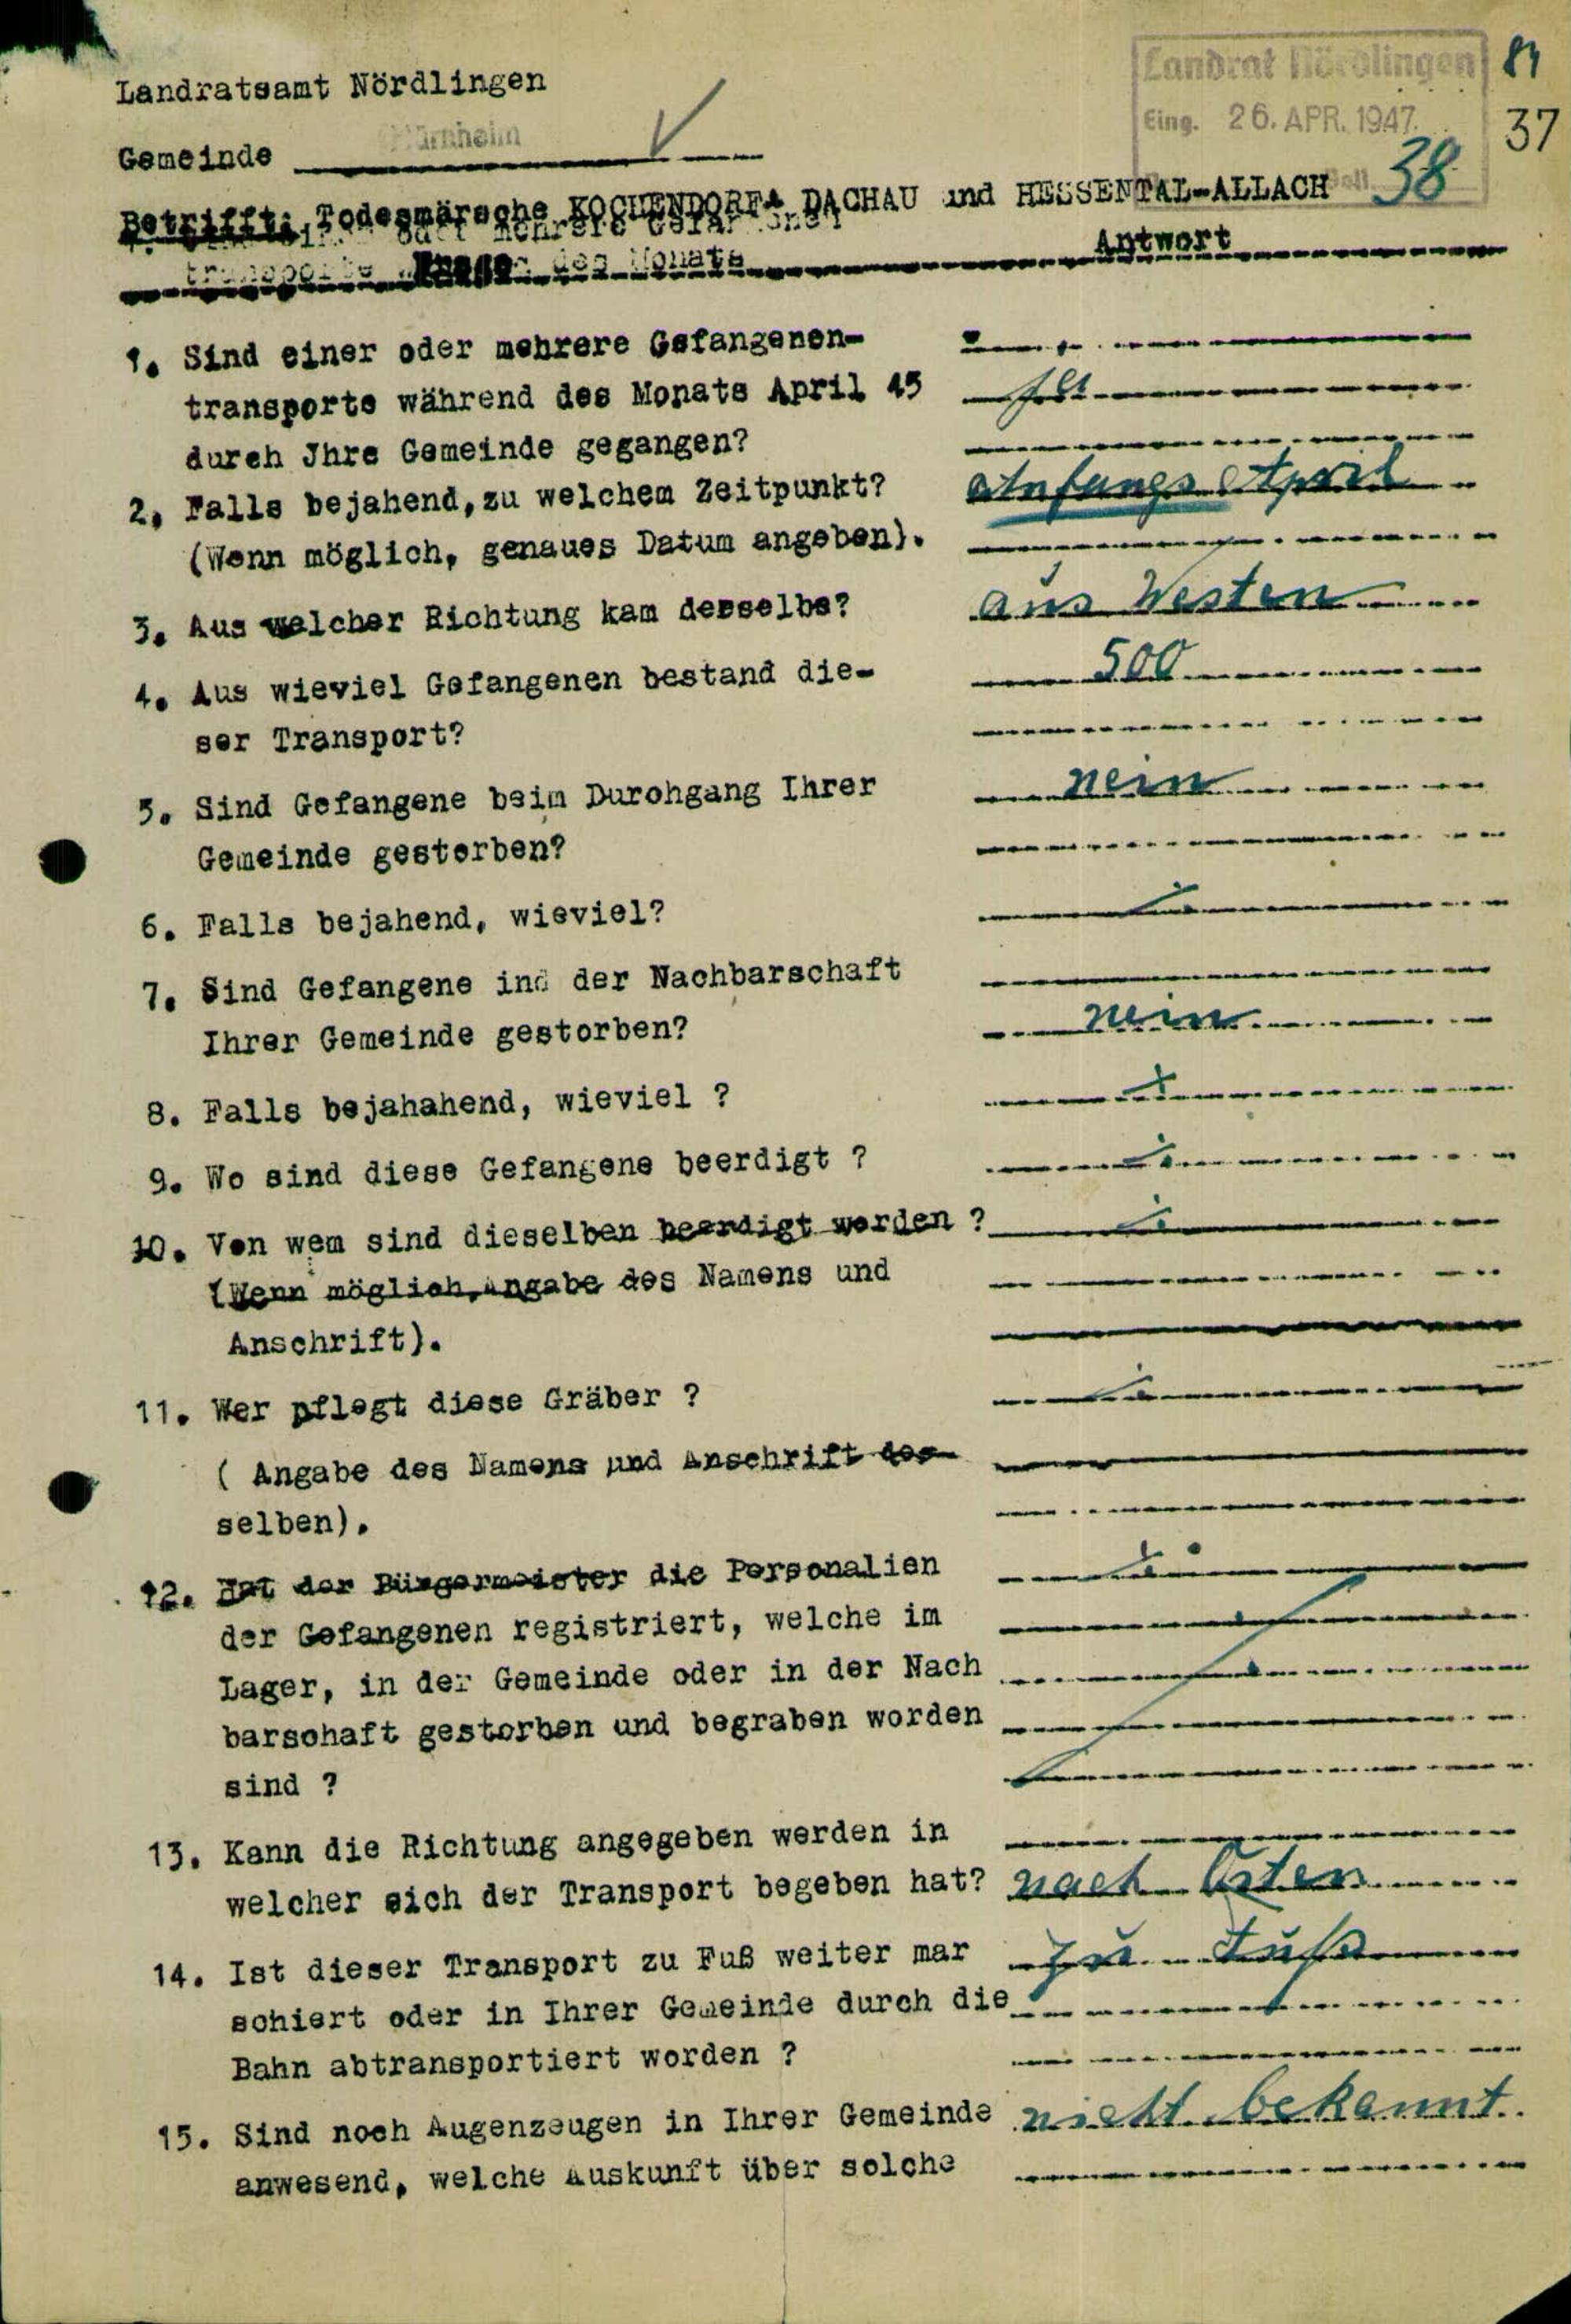 Landrat Nördlingen
84
Landratsamt Nördlingen
Eing. 26. APR. 1947
37
Gemeinde Hürnheim
38
Betrifft: Todesmärsche KOCHENDORF- DACHAU und HESSENTAL-ALLACH
Frage Antwort
1. Sind einer oder mehrere Gefangenen-
transporte während des Monats April 45 ja
durch Jhre Gemeinde gegangen?
2. Falls bejahend, zu welchem Zeitpunkt? Anfangs April
(Wenn möglich, genaues Datum angeben).
3. Aus welcher Richtung kam derselbe? aus Westen
4. Aus wieviel Gefangenen bestand die- 500
ser Transport?
5. Sind Gefangene beim Durchgang Ihrer nein
Gemeinde gestorben?
6. Falls bejahend, wieviel?
7. Sind Gefangene ind der Nachbarschaft
Ihrer Gemeinde gestorben? nein
8. Falls bejahahend, wieviel ?
9. Wo sind diese Gefangene beerdigt ?
10. Von wem sind dieselben beerdigt worden ?
(Wenn möglich, Angabe des Namens und
Anschrift).
11. Wer pflegt diese Gräber ?
( Angabe des Namens und Anschrift des-
selben).
12. Hat der Bürgermeister die Personalien
der Gefangenen registriert, welche im
Lager, in der Gemeinde oder in der Nach
barschaft gestorben und begraben worden
sind ?
13. Kann die Richtung angegeben werden in
welcher sich der Transport begeben hat? nach Osten
14. Ist dieser Transport zu Fuß weiter mar zu Fuß
schiert oder in Ihrer Gemeinde durch die
Bahn abtransportiert worden ?
15. Sind noch Augenzeugen in Ihrer Gemeinde nicht bekannt
anwesend, welche Auskunft über solche